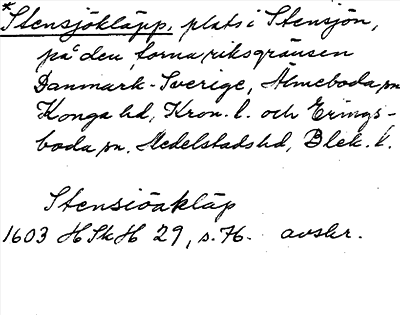 *Stensjökläpp, plats i Stensjön,
på den forna riksgränsen
Danmark-Sverige, Älmeboda sn
Konga hd, Kron. l. och Erings-
boda sn. Medelstads hd, Blek. l.
Stensiöakläp
1603 HSkH 29, s. 76. avskr.